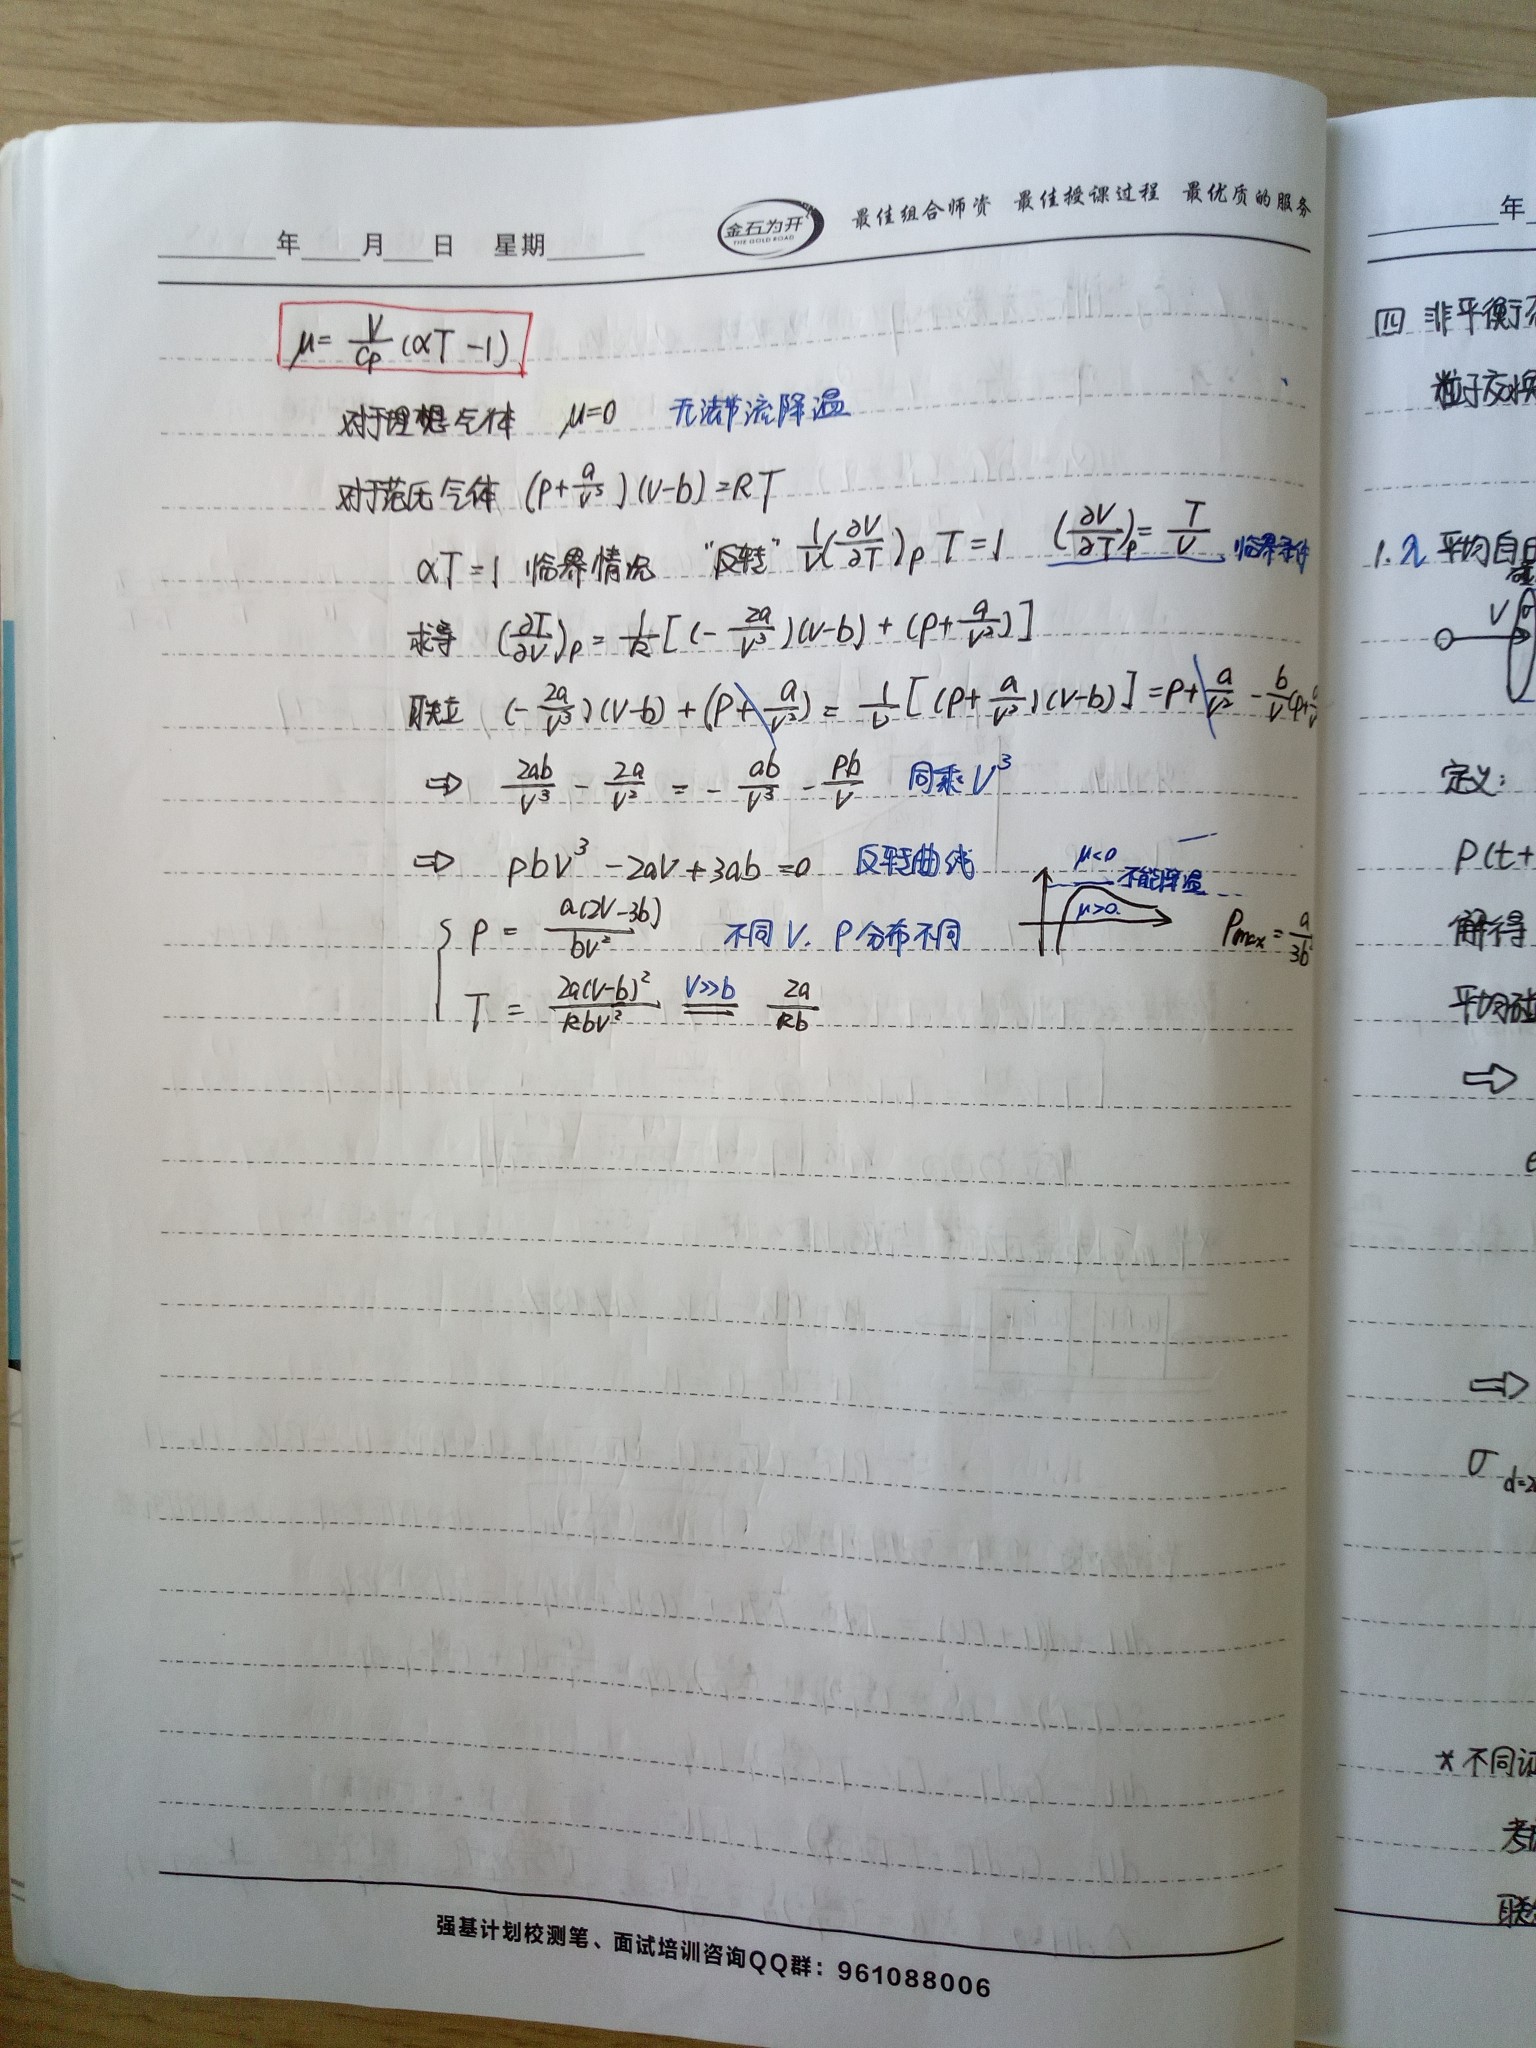 年 月 日 星期
金石为开
THE GOLD ROAD
最佳组合师资 最佳授课过程 最优质的服务
μ= V/Cp (αT-1)
对于理想气体 μ=0 无法节流降温
对于范氏气体 (P+a/V²)(V-b)=RT
αT=1 临界情况 "反转" 1/V(∂V/∂T)p T=1 (∂V/∂T)p= T/V 临界条件
求导 (∂T/∂V)p = 1/R [(-2a/V³)(V-b)+(P+a/V²)]
联立 (-2a/V³)(V-b)+(P+a/V²) = 1/V [(P+a/V²)(V-b)] = P+a/V² - b/V(P+a/V
⇒ 2ab/V³ - 2a/V² = -ab/V³ - Pb/V 同乘V³
⇒ PbV³ -2aV+3ab=0 反转曲线
μ<0
不能降温
μ>0
P = a(2V-3b)/bV² 不同V.P分布不同
Pmax = a/3b
T = 2a(V-b)²/RbV² V>>b 2a/Rb
强基计划校测笔、面试培训咨询QQ群：961088006
年
四 非平衡
粒子交换
1.λ 平均自由
V
定义：
P(t+
解得
平均碰
⇒
⇒
σ d=2
*不同证
联